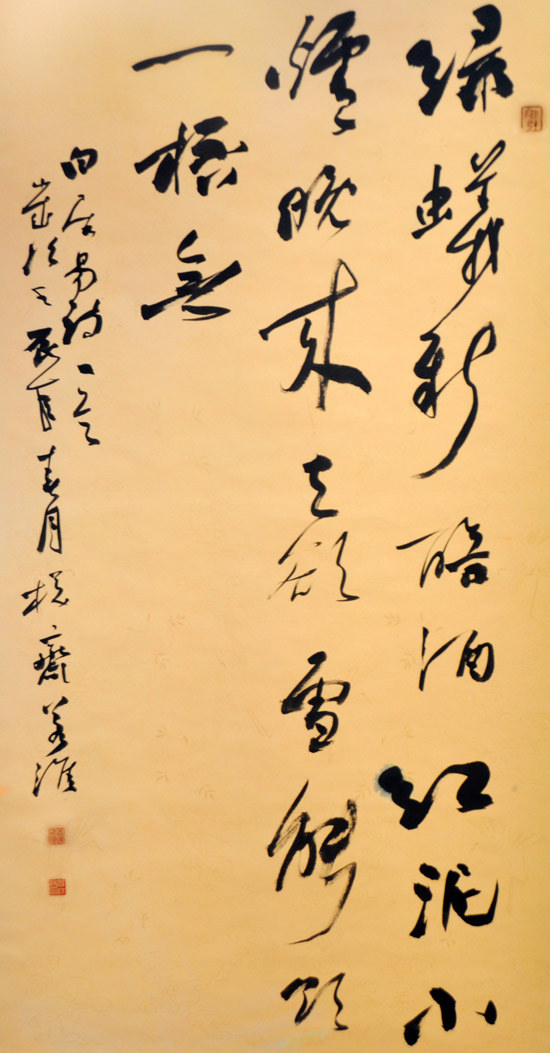 綠蟻新醅酒紅泥小
爐晚來天欲雪能飲
一桮無
白居易詩一首
歲次壬辰春月 齋